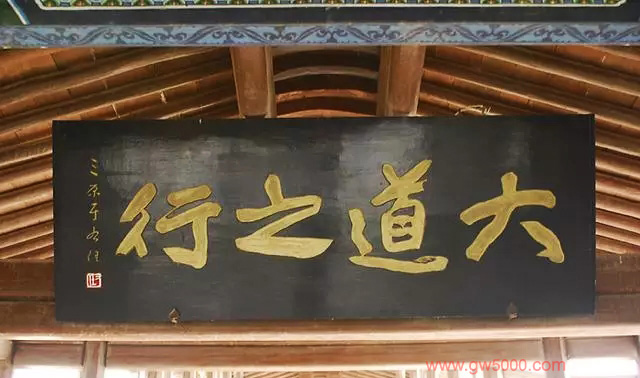 大道之行
三原于右任
www.gw5000.com